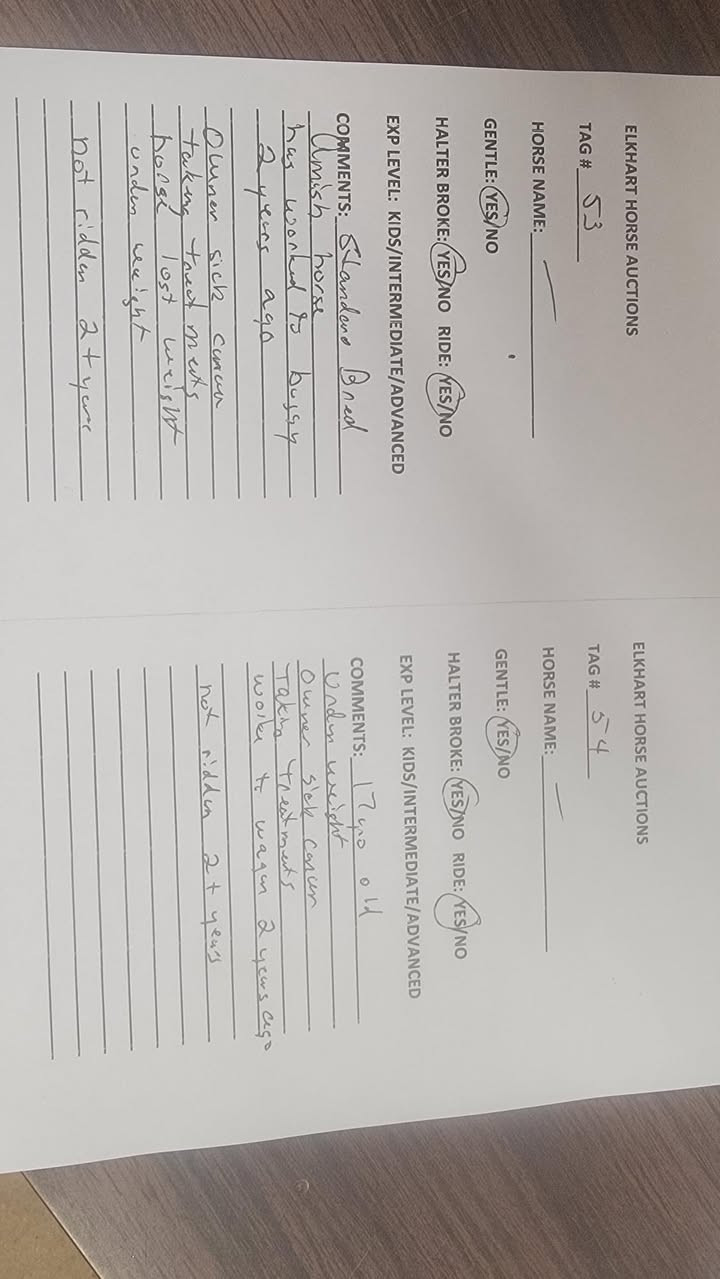 ELKHART HORSE AUCTIONS
TAG # 53
HORSE NAME: —
GENTLE: YES/NO
HALTER BROKE: YES/NO RIDE: YES/NO
EXP LEVEL: KIDS/INTERMEDIATE/ADVANCED
COMMENTS: Standard Bred
Amish horse
has worked to buggy
2 years ago
Owner sick cancer
taking treatments
horse lost weight
under weight
not ridden 2+ years
ELKHART HORSE AUCTIONS
TAG # 54
HORSE NAME: —
GENTLE: YES/NO
HALTER BROKE: YES/NO RIDE: YES/NO
EXP LEVEL: KIDS/INTERMEDIATE/ADVANCED
COMMENTS: 17 old
Under weight
Owner sick cancer
Taking treatments
to wagon 2 years ago
not ridden 2+ years